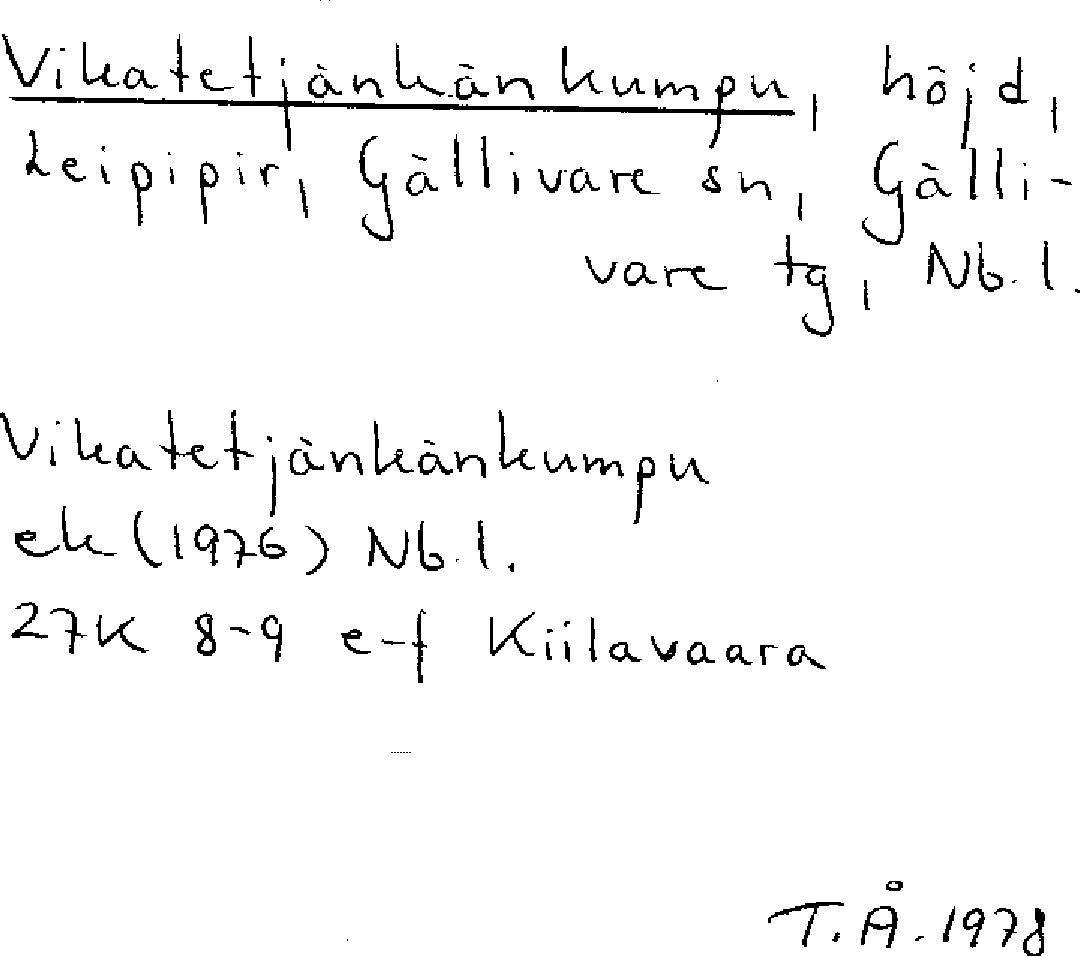 Vikatetjänkänkumpu, höjd,
Leipipir, Gällivare sn, Gälli-
vare tg, Nb. l.
Vikatetjänkänkumpu
ek (1976) Nb. l.
27K 8-9 e-f Kiilavaara
T.Å. 1978